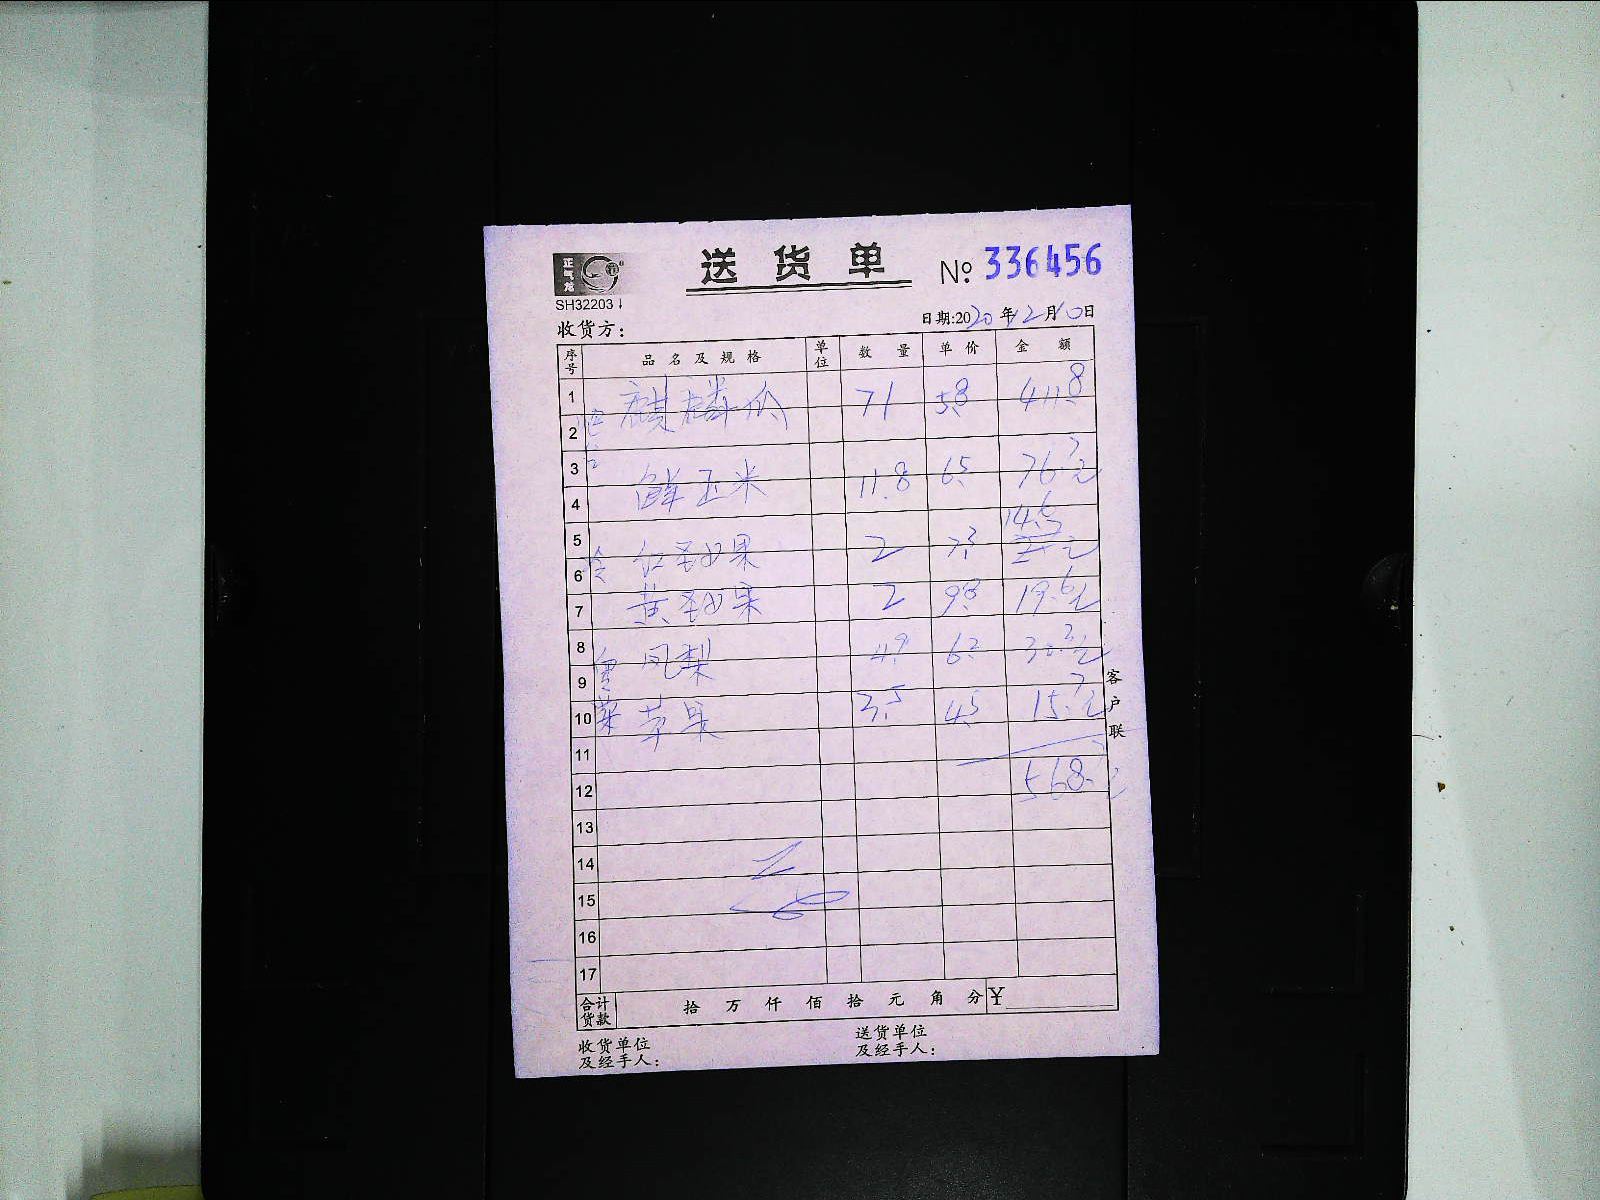 正气龙
送货单 № 336456
SH32203
收货方: 日期:2020年12月10日
序号 品名及规格 单位 数量 单价 金额
1 麒麟瓜 71 5.8 411.8
2
3 鲜玉米 11.8 6.5 76.7元
4
5 14.6
6 红圣女果 2 7.3 元
7 黄圣女果 2 9.8 19.6元
8 凤梨 4.9 6.2 30.2元
9
10 苹果 3.5 4.5 15.7元
11
12 568.
13
14
15
16
17
合计货款 拾 万 仟 佰 拾 元 角 分 ¥
收货单位及经手人: 送货单位及经手人:
客户联